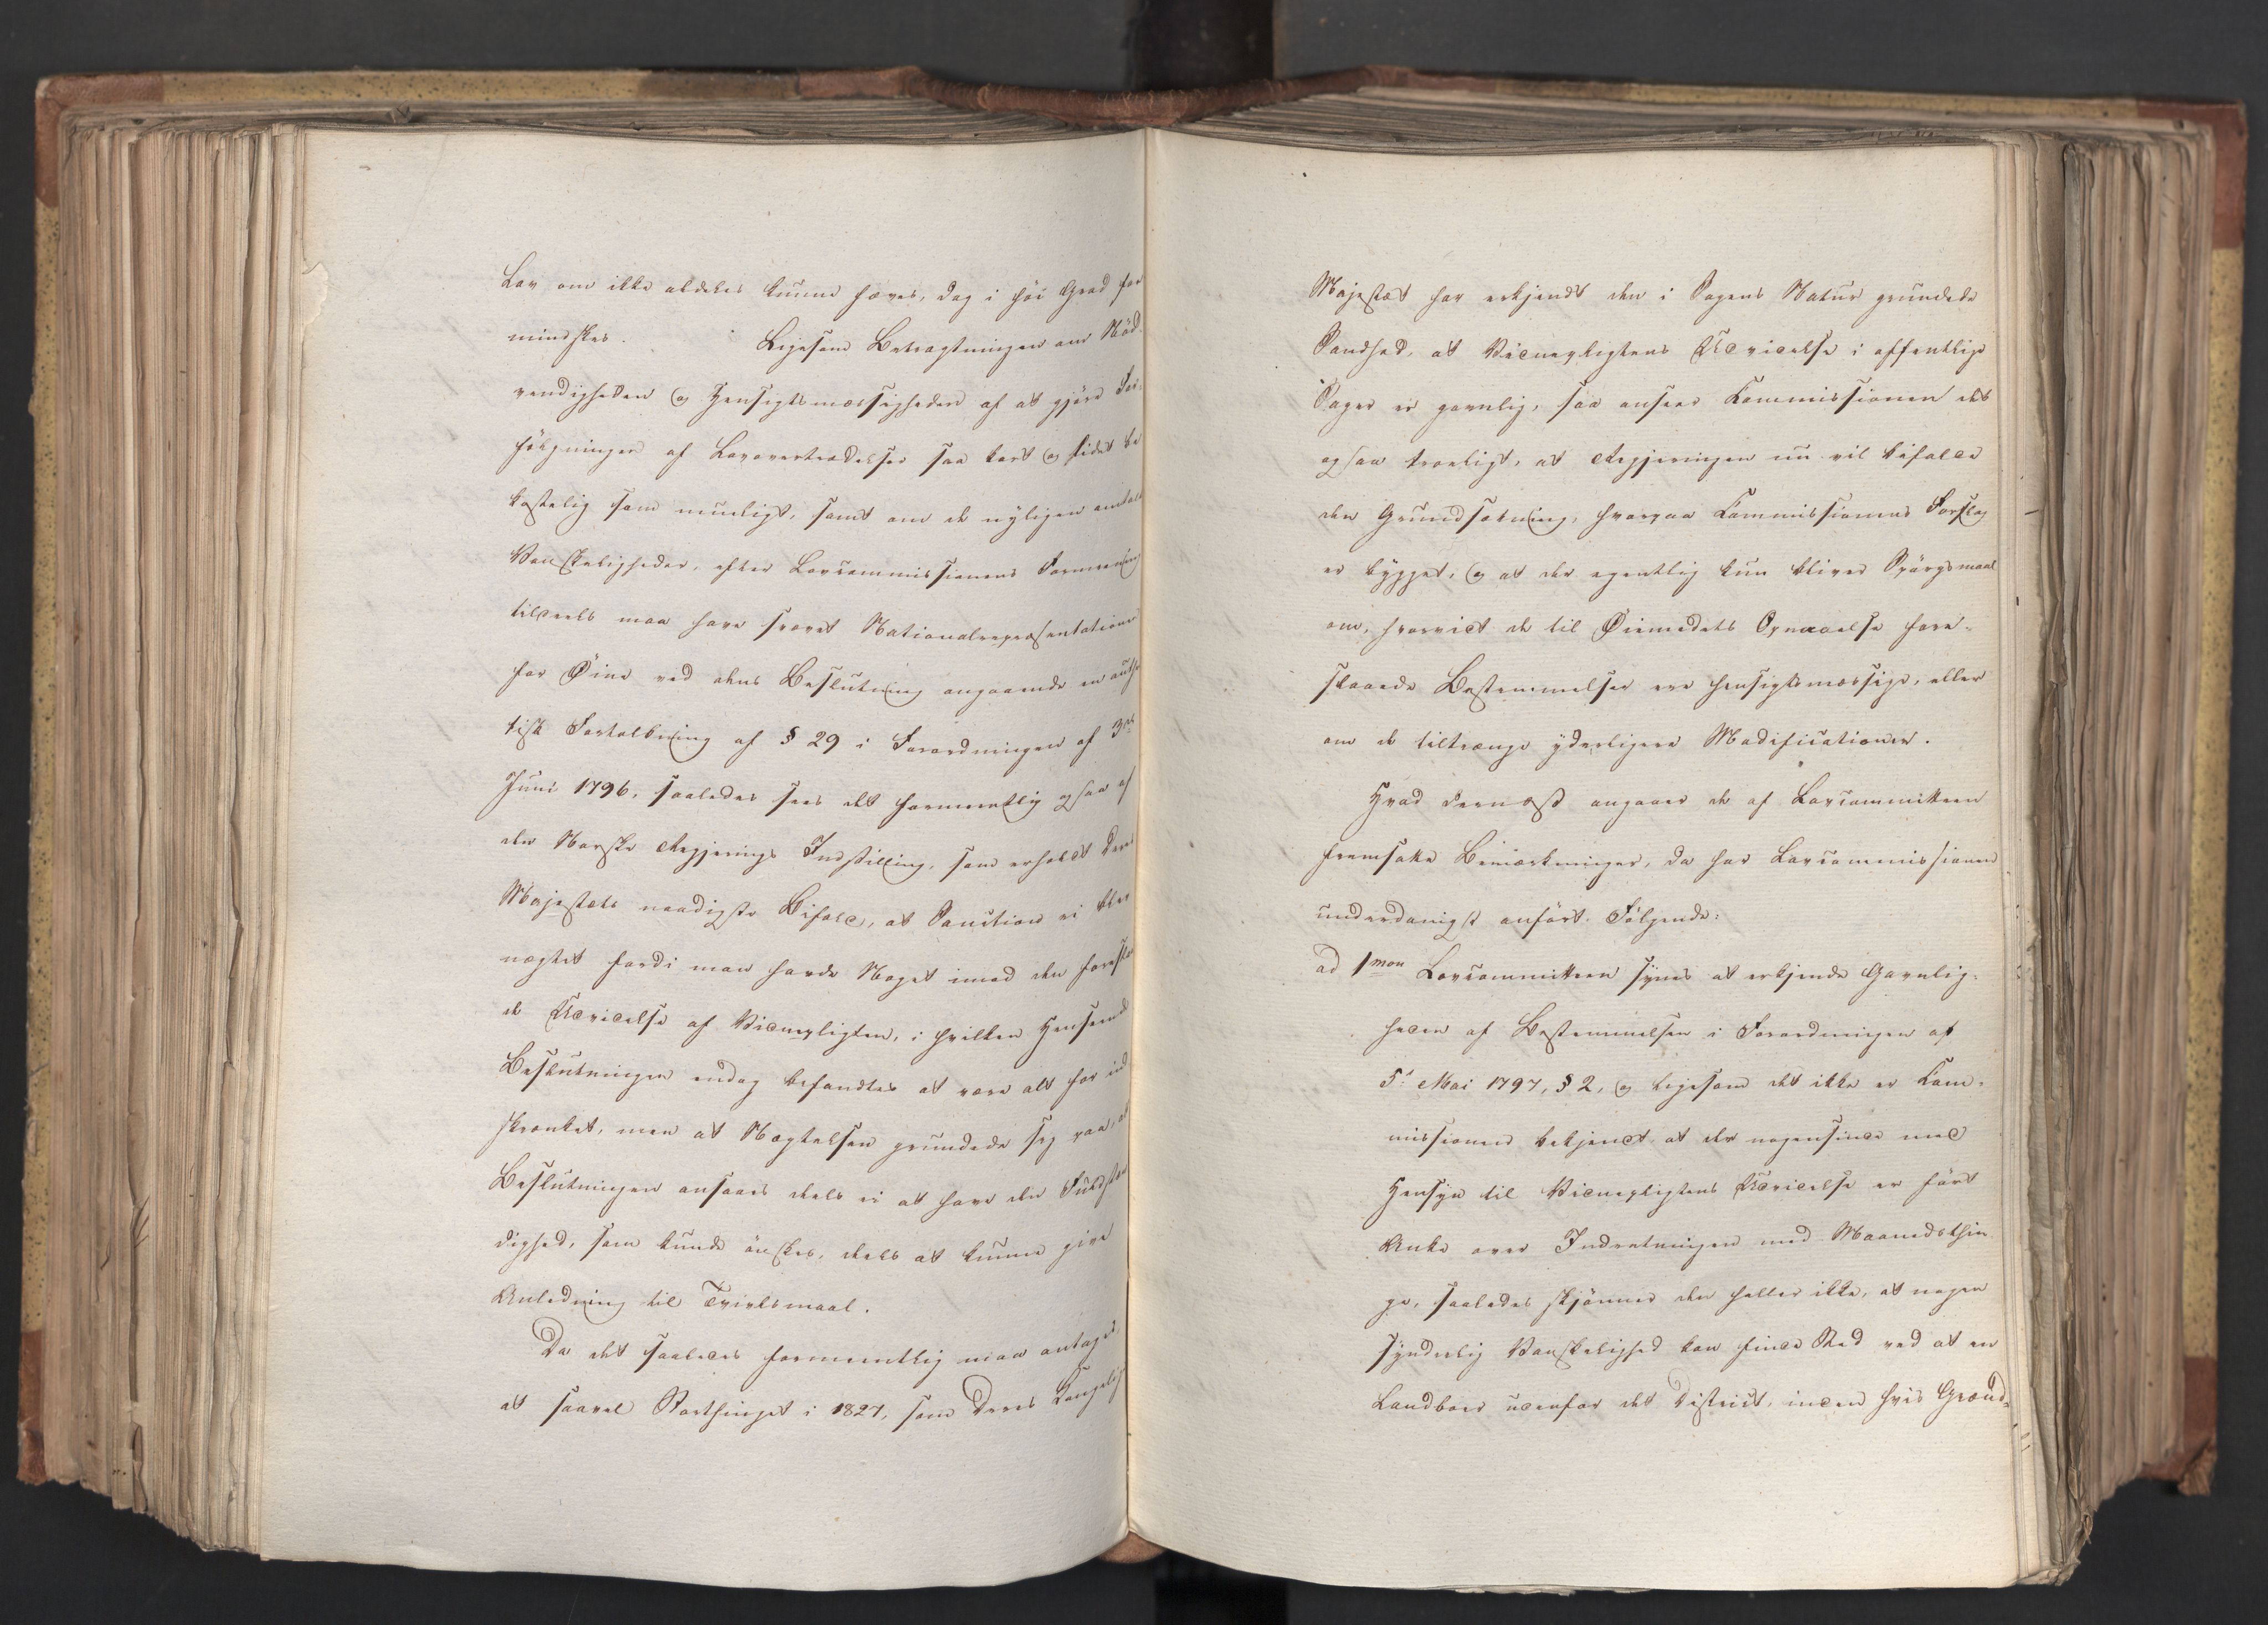 Lov om ikke aldeles kunne hæves, dog i høi Grad for
mindskes. Ligesom Betragtningen om Nød-
vendigheden og Hensigtsmæssigheden af at gjøre For-
følgningen af Lovovertrædelser saa kort og lidet be
kostelig som mueligt, samt om de nyligen omtalte
Vanskeligheder, efter Lovcommissionens Formening
tildeels maa have svævet Nationalrepræsentationen
for Øine ved dens Beslutning angaaende en authen
tisk Fortolkning af § 29 i Forordningen af 3die
Juni 1796, saaledes sees det formeentlig ogsaa af
den Norske Regjerings Indstilling, som erholdt Deres
Majestæts naadigste Bifald, at Sanction ei blev
nægtet fordi man havde Noget imod den foreslaae
de Udvidelse af Vidnepligten, i hvilken Henseende
Beslutningen endog befandtes at være alt for ind
skrænket, men at Nægtelsen grundede sig paa, at
Beslutningen ansaaes deels ei at have den Fuldstæn
dighed, som kunde önskes, deels at kunne give
Anledning til Tvivlsmaal.
Da det saaledes formeentlig maa antages,
at saavel Storthinget i 1827, som Deres Kongelige
Majestæt har erkjendt den i Sagens Natur grundede
Sandhed, at Vidnepligtens Udvidelse i offentlige
Sager er gavnlig, saa anseer Kommissionen det
ogsaa troeligt, at Regjeringen nu vil bifalde
den Grundsætning, hvorpaa Kommissionens Forslag
er bygget, og at der egentlig kun bliver Spörgsmaal
om, hvorvidt de til Øiemedets Opnaaelse fore-
slaaede Bestemmelser ere hensigtsmæssige, eller
om de tiltrænge yderligere Modificationer.
Hvad dernæst angaaer de af Lovcommitteen
fremsatte Bemærkninger, da har Lovcommissionen
underdanigst anført Følgende:
ad 1mon Lovcommitteen synes at erkjende Gavnlig-
heden af Bestemmelsen i Forordningen af
5t Mai 1797, § 2, og ligesom det ikke er Kom-
missionen bekjendt at der nogensinde med
Hensyn til Vidnepligtens Udvidelse er ført
Anke over Indretningen med Maanedsthin
ge, saaledes skjönner den heller ikke, at nogen
synderlig Vanskelighed kan finde Sted ved at en
Landboer udenfor det District, inden hvis Grænd-